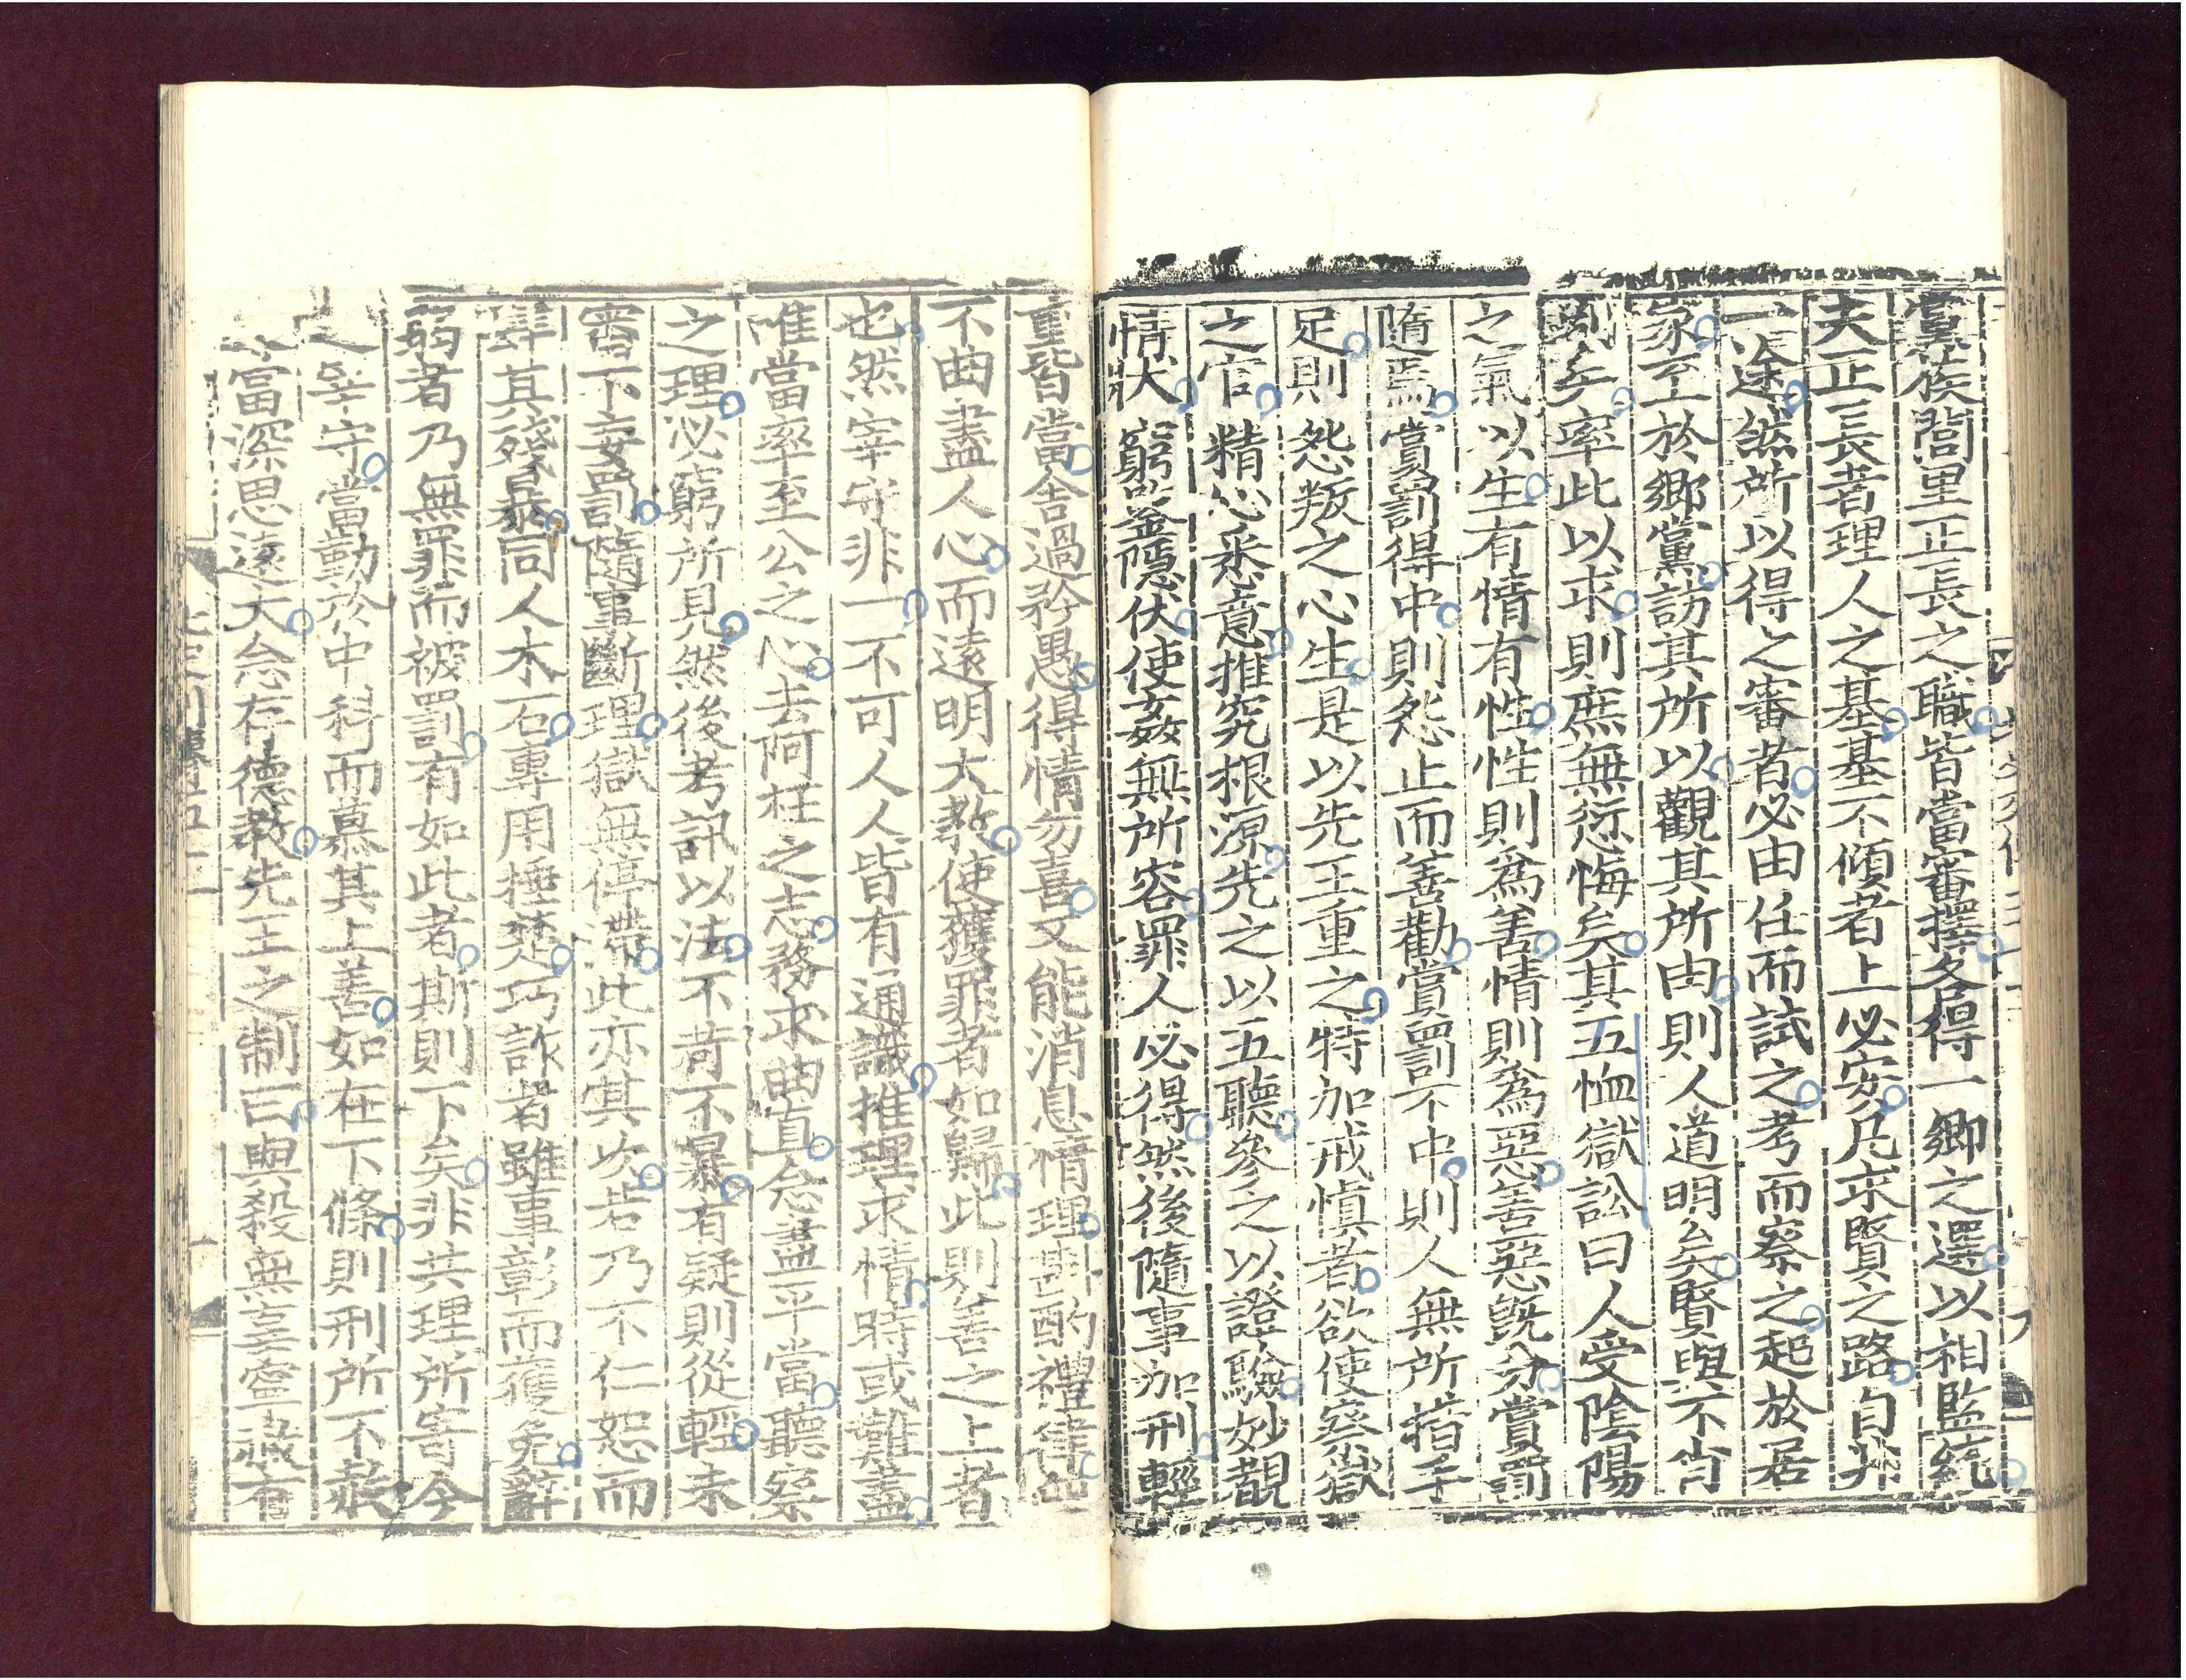 黨族閭里正長之職皆當審擇各得一鄉之選以相監統
夫正長者理人之基基不傾者上必安凡求賢之路自非
一途然所以得之審者必由任而試之考而察之起於居
家至於鄉黨訪其所以觀其所由則人道明矣賢與不肖
別矣率此以求則庶無愆悔矣其五恤獄訟曰人受陰陽
之氣以生有情有性性則爲善情則爲惡善惡旣分賞罰
隨焉賞罰得中則惡止而善勸賞罰不中則人無所措手
足則怨叛之心生是以先王重之特加戒慎者欲使察獄
之官精心悉意推究根源先之以五聽參之以證驗妙覩
情狀窮鑒隱伏使姦無所容罪人必得然後隨事加刑輕
重皆當舍過矜愚得情勿喜又能消息情理斟酌禮律
不曲盡人心而遠明大敎使獲罪者如歸此則善之上者
也然宰守非一不可人人皆有通識推理求情時或難盡
唯當率至公之心去阿枉之志務求曲直念盡平當聽察
之理必窮所見然後考訊以法不苛不暴有疑則從輕未
審不妄罰隨事斷理獄無停滯此亦其次若乃不仁恕而
肆其殘暴同人木石專用捶楚巧詐者雖事彰而獲免辭
弱者乃無罪而被罰有如此者斯則下矣非共理所寄今
之宰守當勤於中科而慕其上善如在下條則刑所不赦
當深思遠大念存德敎先王之制曰與殺無辜寧赦有